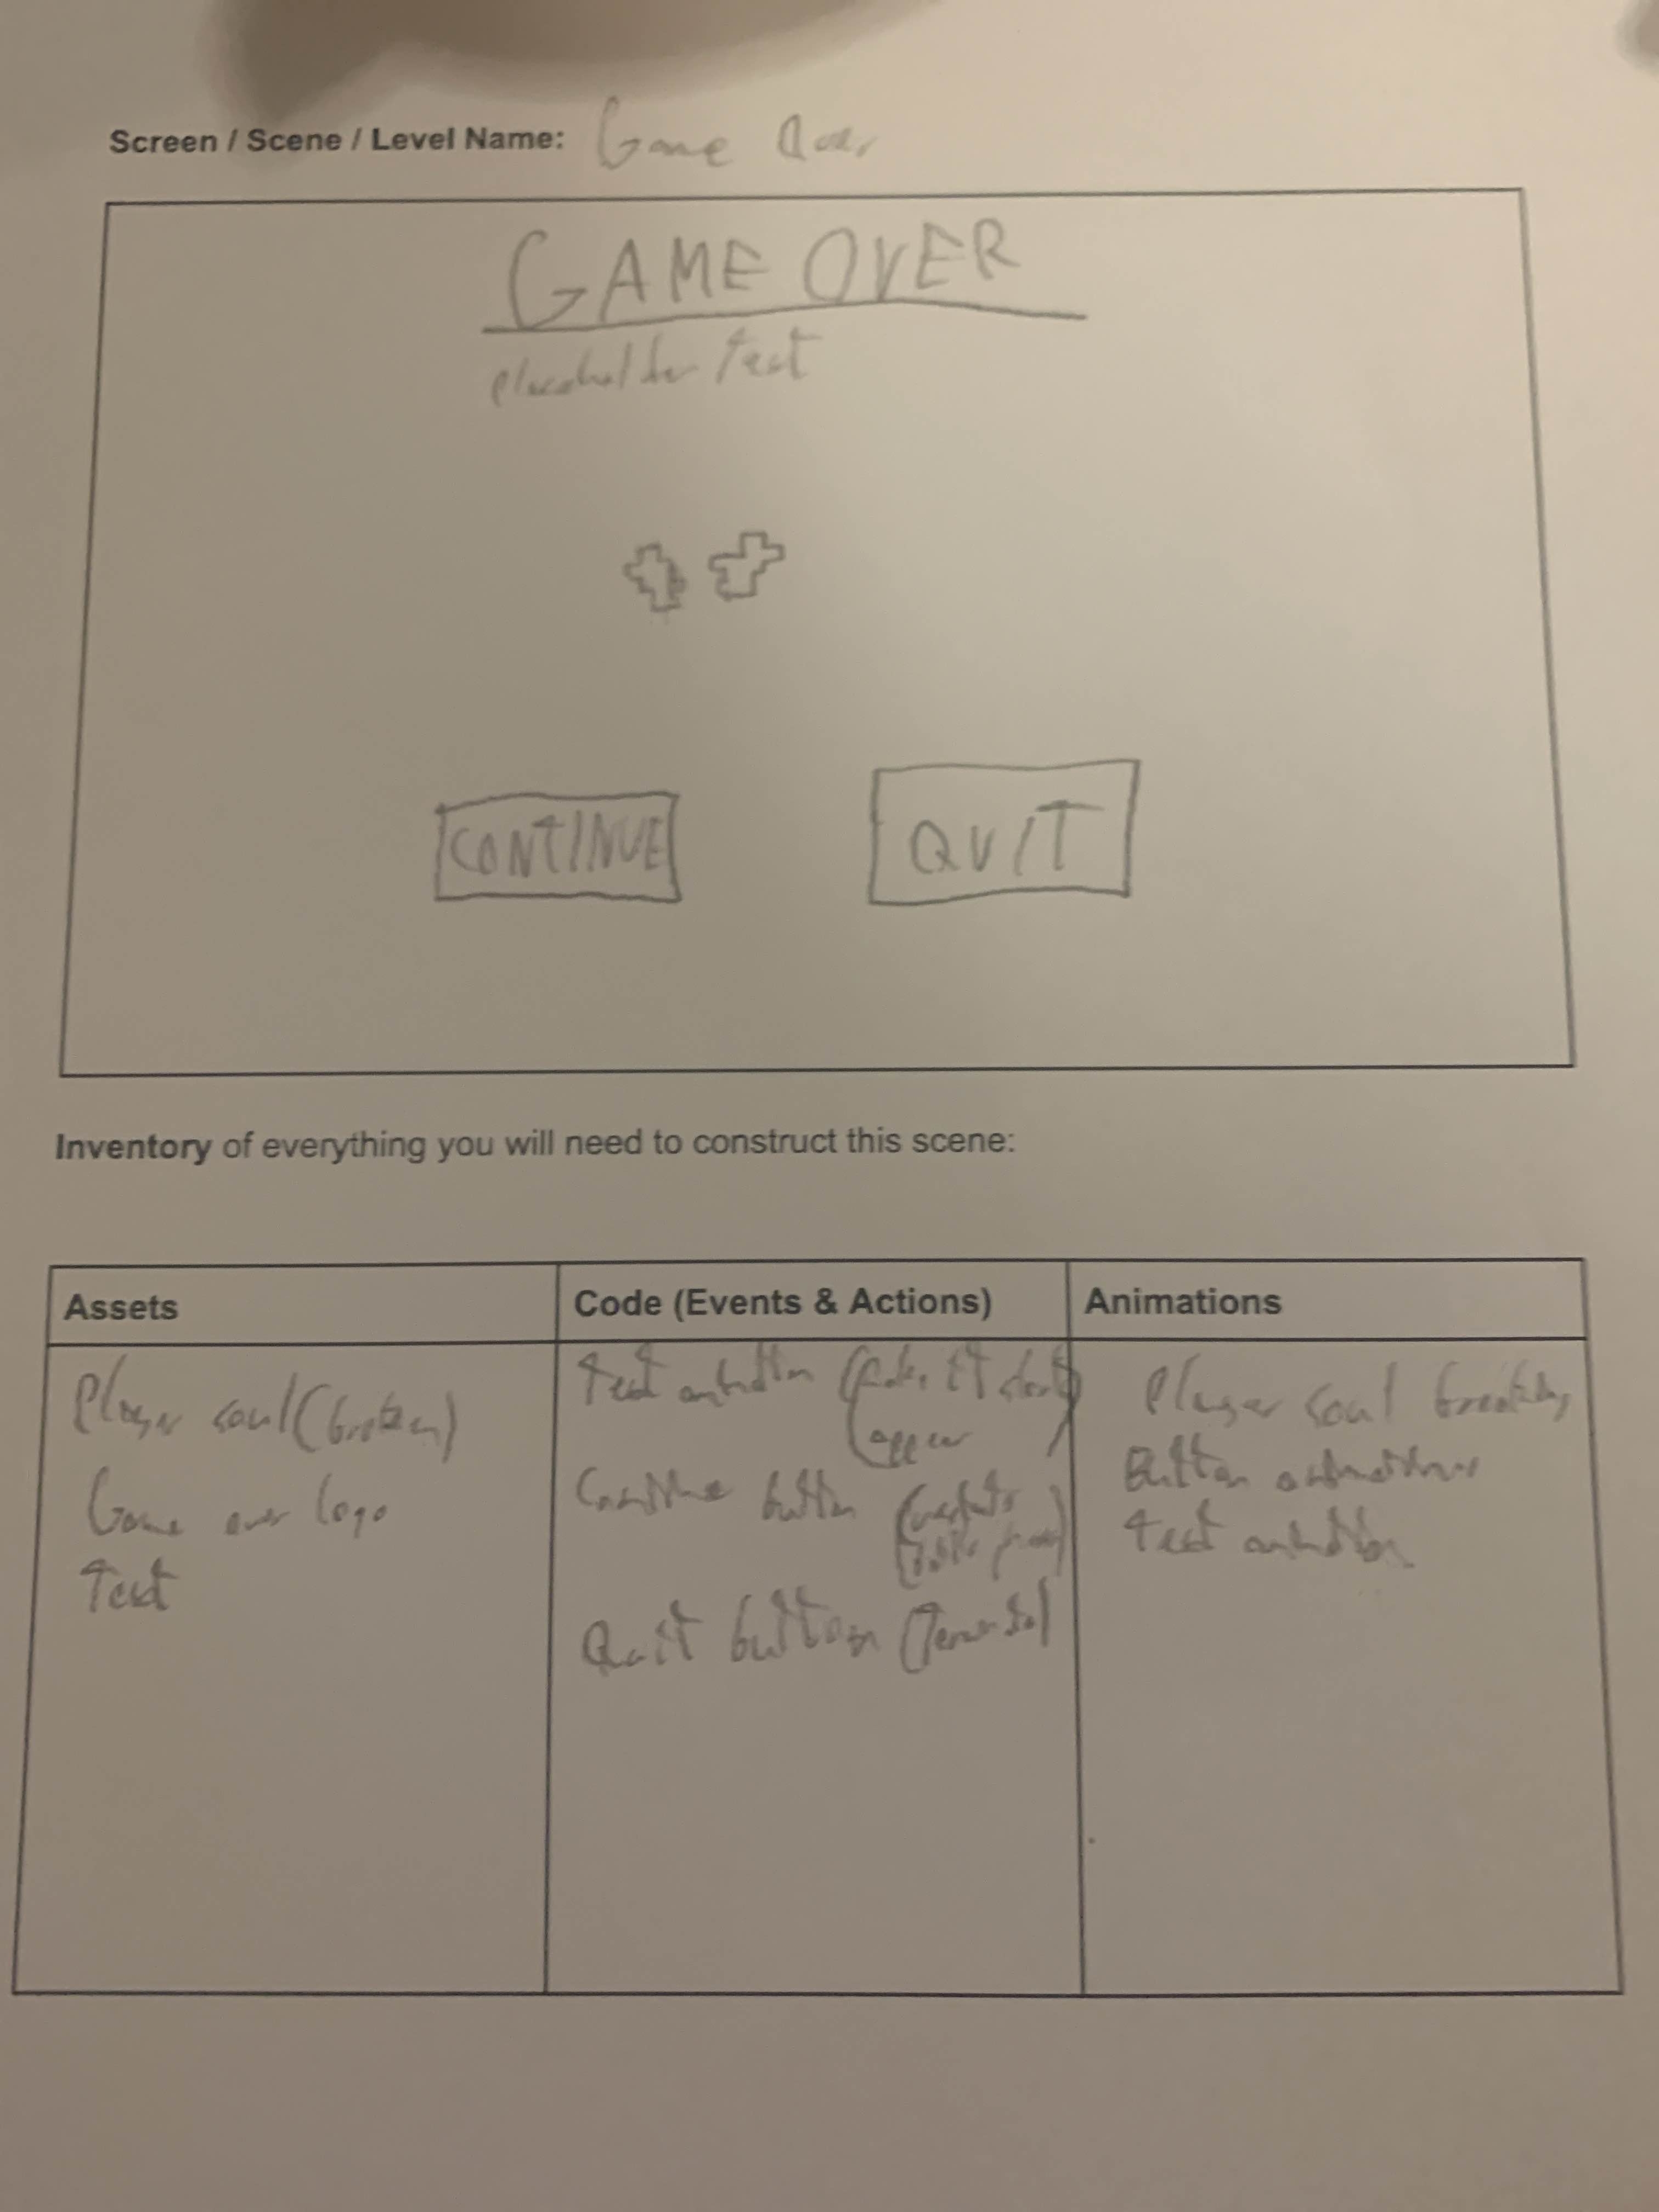 Screen / Scene / Level Name: Game Over
GAME OVER
placeholder text
CONTINUE
QUIT
Inventory of everything you will need to construct this scene:
Assets
Code (Events & Actions)
Animations
Player soul (broken)
Game over logo
Text
Text animation (makes it
appear
Continue button
Quit button
Player soul breaking
Button animations
Text animation